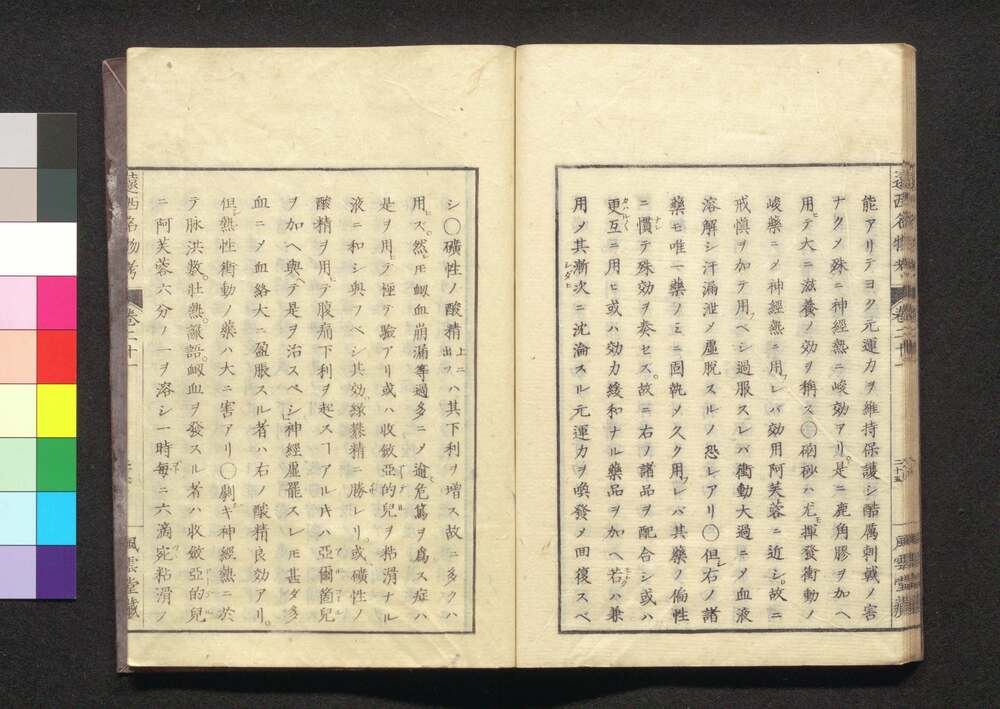 能アリテヨク元運力ヲ維持保護シ酷厲刺戟ノ害
ナクメ殊ニ神經熱ニ峻効アリ。是ニ鹿角膠ヲ加ヘ
用テ大ニ滋養ノ効ヲ稱ス〇硇砂ハ尤揮發衝動ノ
峻藥ニメ神經熱ニ用レバ効用阿芙蓉ニ近シ。故ニ
戒愼ヲ加テ用ベシ過服スレバ衝動大過ニメ血液
溶解シ汗漏泄メ虛脱スルノ恐レアリ〇但右ノ諸
藥モ唯一藥ノミニ固執メ久ク用レバ其藥ノ偏性
ニ慣テ殊効ヲ奏セズ。故ニ右ノ諸品ヲ配合シ或ハ
更互ニ用ヒ或ハ効力緩和ナル藥品ヲ加ヘ若ハ兼
用メ其漸次ニ沈淪スル元運力ヲ喚發メ回復スベ
シ〇礦性ノ酸精上ニ出ツハ其下利ヲ增ス故ニ多クハ
用ズ。然ヒモ衂血崩漏等過多ニメ逾危篤ヲ爲ス症ハ
是ヲ用テ極テ驗アリ或ハ收斂亞的兒ヲ粘滑ナル
液ニ和シ與フベシ其効綠礬精ニ勝レリ。或礦性ノ
酸精ヲ用テ腹痛下利ヲ起スヿアルキハ亞爾箇兒
ヲ加ヘ與テ是ヲ治スベシ神經虛罷スレモ甚ダ多
血ニメ血絡大ニ盈脹スル者ハ右ノ酸精良効アリ。
但熱性衝動ノ藥ハ大ニ害アリ〇劇キ神經熱ニ於
テ脉洪數。壯熱譫語。衂血ヲ發スル者ハ收斂亞的兒
ニ阿芙蓉六分ノ一ヲ溶シ一時每ニ六滴宛粘滑ノ
遠西名物考
卷二十一
風雲堂藏